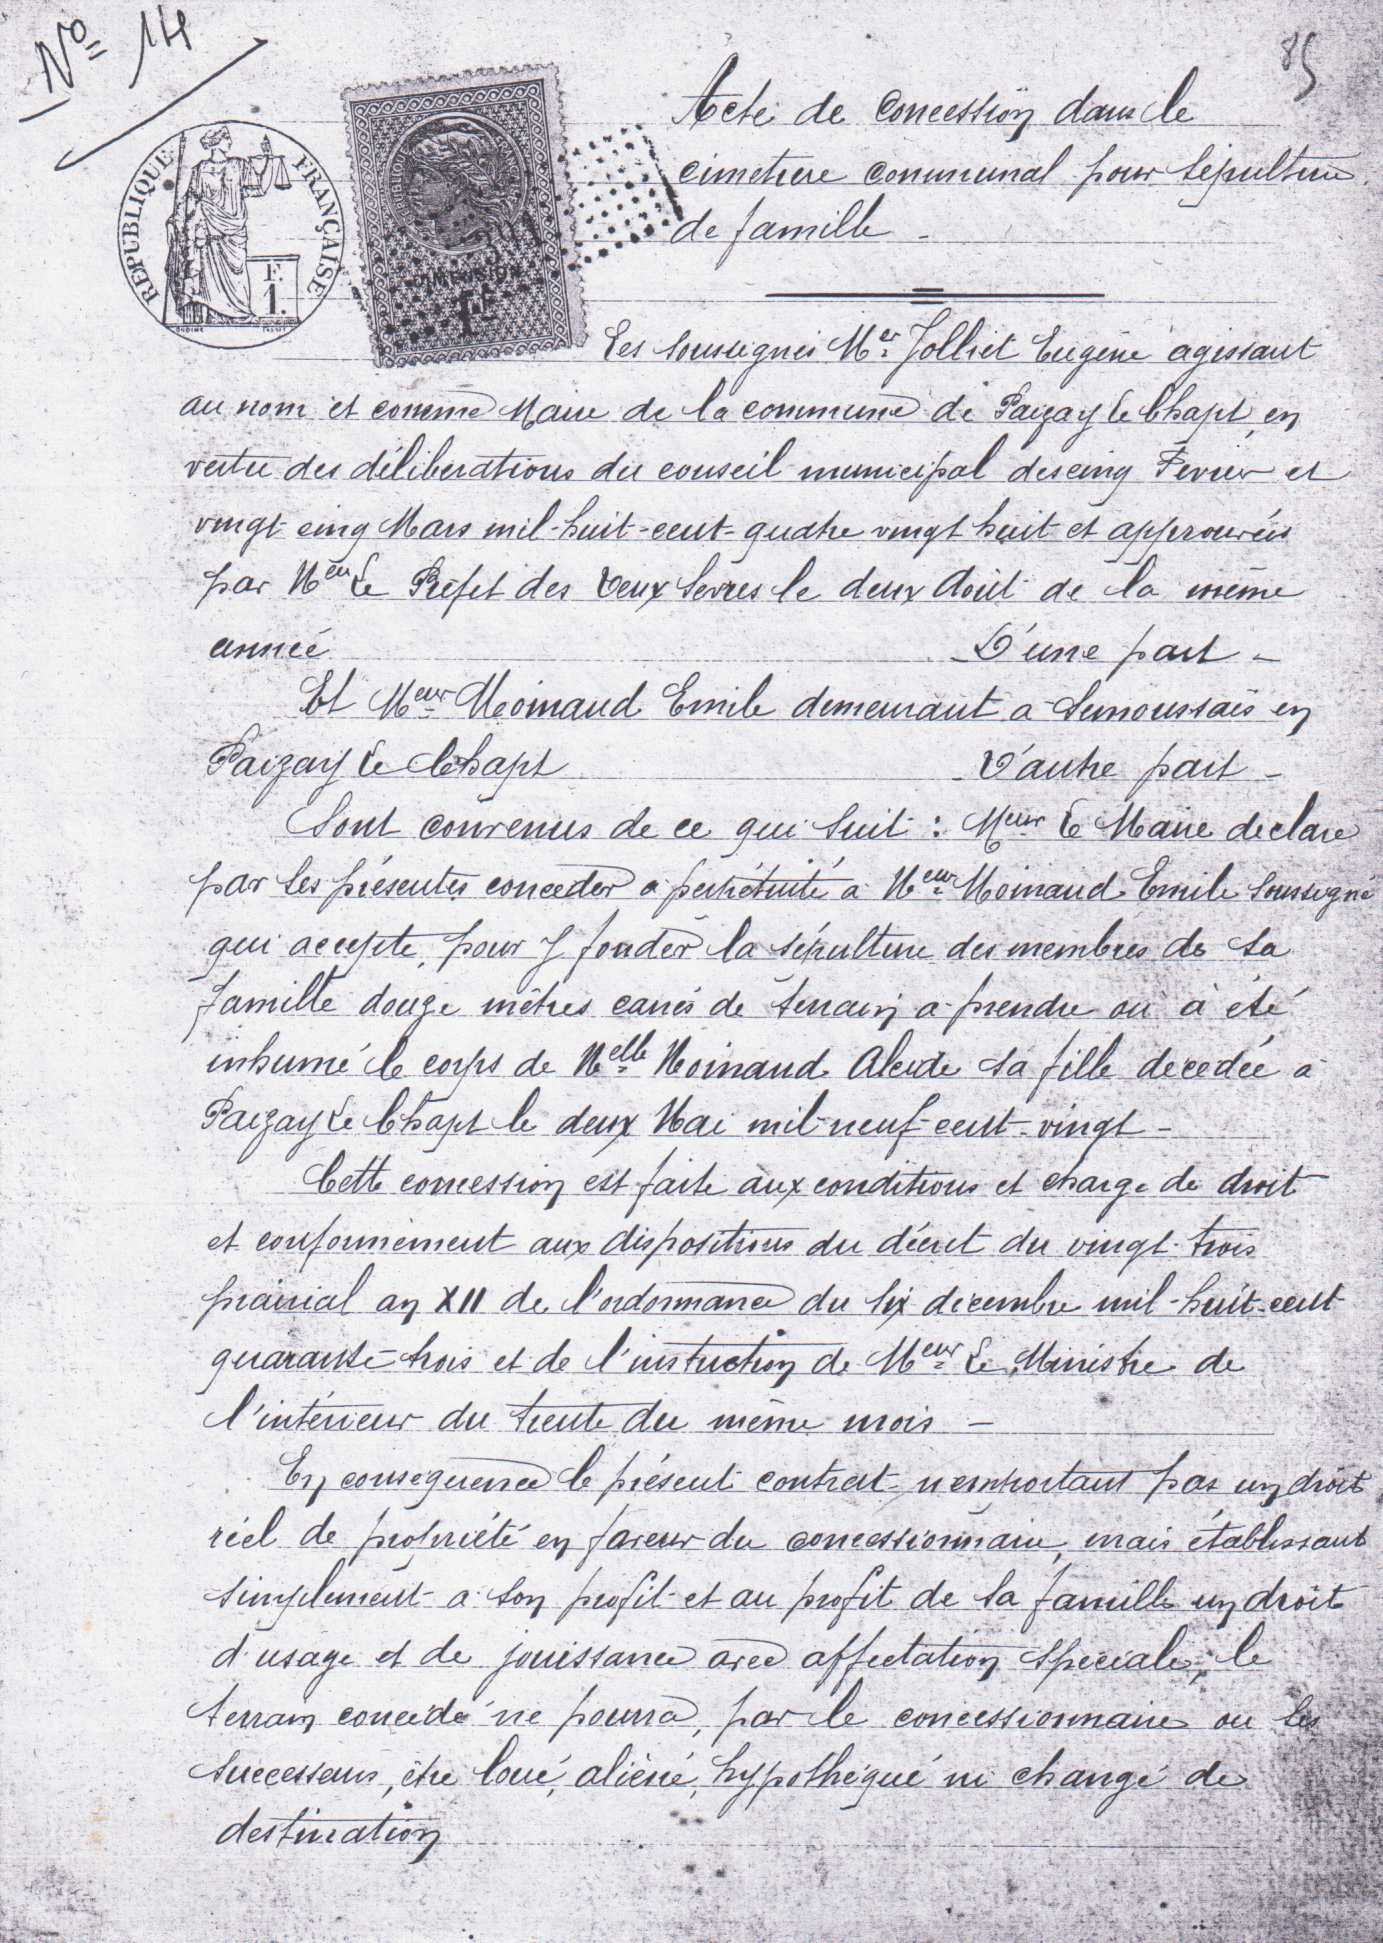 Nº 14
85
RÉPUBLIQUE FRANÇAISE
F.
1.
Acte de Concession dans le
cimetiere communal pour Sépulture
de famille -
Les soussignés Mr Jolliet Eugène agissant
au nom et comme Maire de la commune de Paizay le Chapt, en
vertu des déliberations du conseil municipal des cinq Fevrier et
vingt cinq Mars mil-huit-cent-quatre vingt huit et approuvées
par Meur le Préfet des Deux Sevres le deux Août de la même
année D'une part -
Et Meur Moinaud Emile demeurant a Semoussais en
Paizay le Chapt D'autre part -
Sont convenus de ce qui suit : Meur le Maire declare
par les présentes conceder a perpétuité a Meur Moinaud Emile Soussigné
qui accepte, pour y fonder la sépulture des membres de sa
famille douze mètres carrés de terrain a prendre ou à été
inhumé le corps de Melle Moinaud Alcide sa fille decedée a
Paizay le Chapt le deux Mai mil-neuf-cent-vingt -
Cette concession est faite aux conditions et charge de droit
et conformement aux dispositions du décret du vingt-trois
prairial an XII de l'ordonnance du six decembre mil-huit-cent
quarante-trois et de l'instruction de Meur le Ministre de
l'intérieur du trente du même mois -
En consequence le présent contrat n'emportant pas un droit
réel de propriété en faveur du concessionnaire, mais établissant
simplement a son profit et au profit de sa famille un droit
d'usage et de jouissance avec affectation spéciale, le
terrain concédé ne pourra, par le concessionnaire ou ses
successeurs, être loué, aliéné, hypothéqué ni changé de
destination